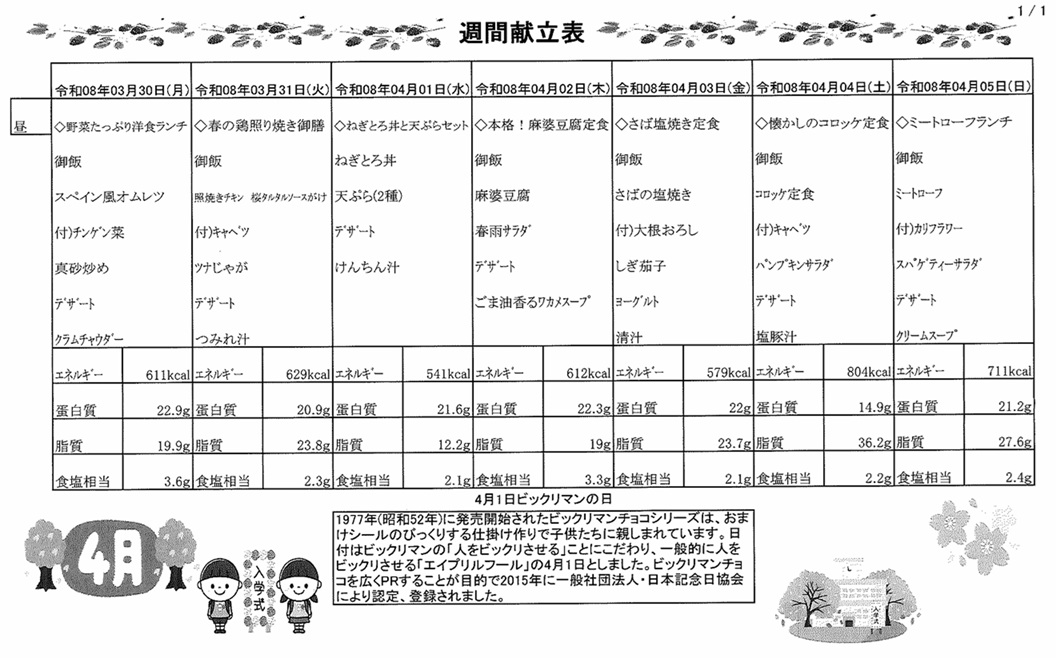 1 / 1
週間献立表
令和08年03月30日(月) 令和08年03月31日(火) 令和08年04月01日(水) 令和08年04月02日(木) 令和08年04月03日(金) 令和08年04月04日(土) 令和08年04月05日(日)
昼 ◇野菜たっぷり洋食ランチ ◇春の鶏照り焼き御膳 ◇ねぎとろ丼と天ぷらセット ◇本格！麻婆豆腐定食 ◇さば塩焼き定食 ◇懐かしのコロッケ定食 ◇ミートローフランチ
御飯 御飯 ねぎとろ丼 御飯 御飯 御飯 御飯
スペイン風オムレツ 照焼きﾁｷﾝ 桜ﾀﾙﾀﾙｿｰｽがけ 天ぷら(2種) 麻婆豆腐 さばの塩焼き ｺﾛｯｹ定食 ﾐｰﾄﾛｰﾌ
付)ﾁﾝｹﾞﾝ菜 付)ｷｬﾍﾞﾂ ﾃﾞｻﾞｰﾄ 春雨ｻﾗﾀﾞ 付)大根おろし 付)ｷｬﾍﾞﾂ 付)ｶﾘﾌﾗﾜｰ
真砂炒め ﾂﾅじゃが けんちん汁 ﾃﾞｻﾞｰﾄ しぎ茄子 ﾊﾟﾝﾌﾟｷﾝｻﾗﾀﾞ ｽﾊﾟｹﾞﾃｨｰｻﾗﾀﾞ
ﾃﾞｻﾞｰﾄ ﾃﾞｻﾞｰﾄ ごま油香るﾜｶﾒｽｰﾌﾟ ﾖｰｸﾞﾙﾄ ﾃﾞｻﾞｰﾄ ﾃﾞｻﾞｰﾄ
ｸﾗﾑﾁｬｳﾀﾞｰ つみれ汁 清汁 塩豚汁 ｸﾘｰﾑｽｰﾌﾟ
ｴﾈﾙｷﾞｰ 611kcal ｴﾈﾙｷﾞｰ 629kcal ｴﾈﾙｷﾞｰ 541kcal ｴﾈﾙｷﾞｰ 612kcal ｴﾈﾙｷﾞｰ 579kcal ｴﾈﾙｷﾞｰ 804kcal ｴﾈﾙｷﾞｰ 711kcal
蛋白質 22.9g 蛋白質 20.9g 蛋白質 21.6g 蛋白質 22.3g 蛋白質 22g 蛋白質 14.9g 蛋白質 21.2g
脂質 19.9g 脂質 23.8g 脂質 12.2g 脂質 19g 脂質 23.7g 脂質 36.2g 脂質 27.6g
食塩相当 3.6g 食塩相当 2.3g 食塩相当 2.1g 食塩相当 3.3g 食塩相当 2.1g 食塩相当 2.2g 食塩相当 2.4g
4月1日ビックリマンの日
1977年(昭和52年)に発売開始されたビックリマンチョコシリーズは、おま
けシールのびっくりする仕掛け作りで子供たちに親しまれています。日
付はビックリマンの「人をビックリさせる」ことにこだわり、一般的に人を
ビックリさせる「エイプリルフール」の4月1日としました。ビックリマンチョ
コを広くPRすることが目的で2015年に一般社団法人・日本記念日協会
により認定、登録されました。
4月
入学式
入学式